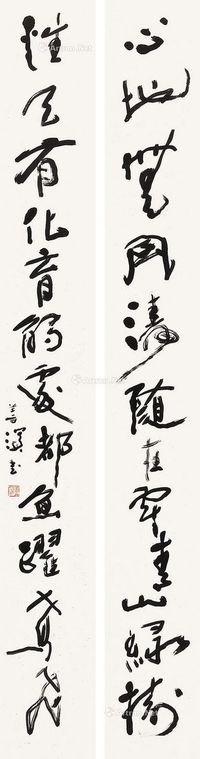 心地無風濤隨在是青山綠樹
性天有化育觸處都魚躍鳶飛
善深書